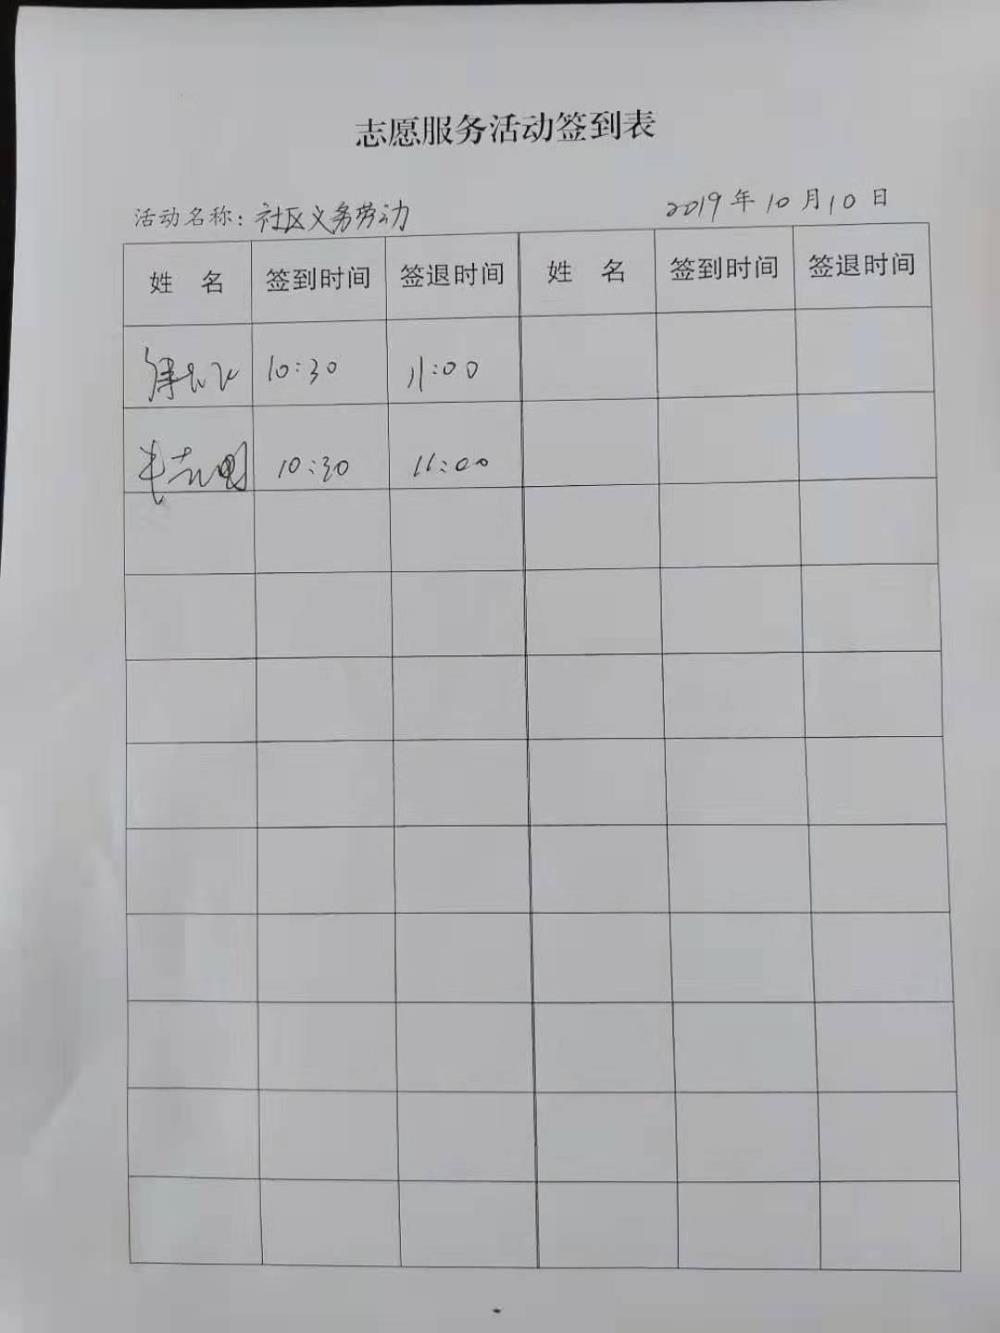 志愿服务活动签到表
活动名称：社区义务劳动 2019年10月10日
姓 名 签到时间 签退时间 姓 名 签到时间 签退时间
10:30 11:00
10:30 11:00